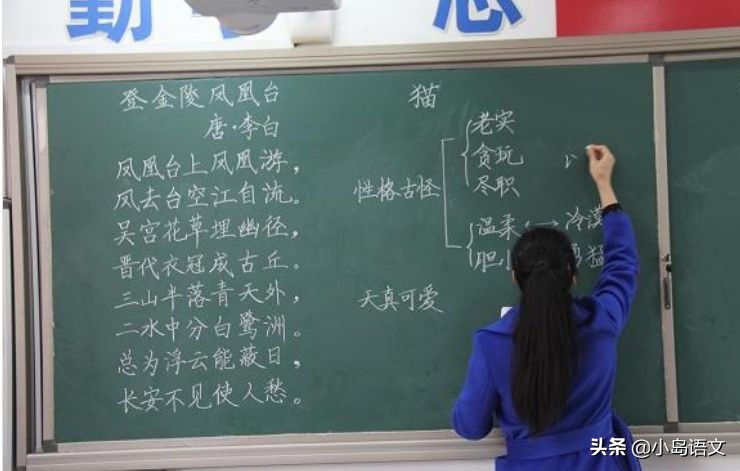 勤
登金陵凤凰台
唐·李白
凤凰台上凤凰游，
凤去台空江自流。
吴宫花草埋幽径，
晋代衣冠成古丘。
三山半落青天外，
二水中分白鹭洲。
总为浮云能蔽日，
长安不见使人愁。
猫
性格古怪
老实
贪玩
尽职
温柔⟷冷漠
胆小 勇猛
天真可爱
头条 @小岛语文